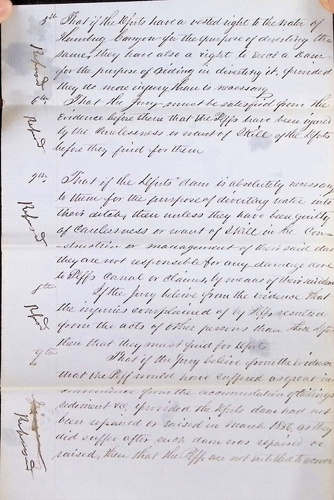 5th That if the Defts have a vested right to the water of
Humbug Canyon for the purpose of diverting the
same, they have also a right to erect a Dam
for the purpose of aiding in diverting it, provided
they do no more injury than is necessary
Refused
6th That the Jury must be satisfied from the
evidence before them that the Plffs have been injured
by the Carelessness or want of Skill of the Defts
before they find for them
Refused
7th That if the Defts' dam is absolutely necessary
to them for the purpose of diverting water into
their ditch, then unless they have been guilty
of Carelessness or want of Skill in the Con-
struction or management of their said dam
they are not responsible for any damage done
to Plffs Canal or Claims, by means of their said dam
Refused
8th If the Jury believe from the evidence that
the injuries complained of by Plffs resulted
from the acts of other persons than these Defts
then they must find for Defts
Refd
9th That if the Jury believe from the evidence
that the Plff would have suffered as great in-
convenience from the accumulation of tailings
sediment &c provided the Defts dam had not
been repaired or raised in March 1856, as they
did suffer after such dam was repaired or
raised, then that the Plffs are not entitled to recover
Refused